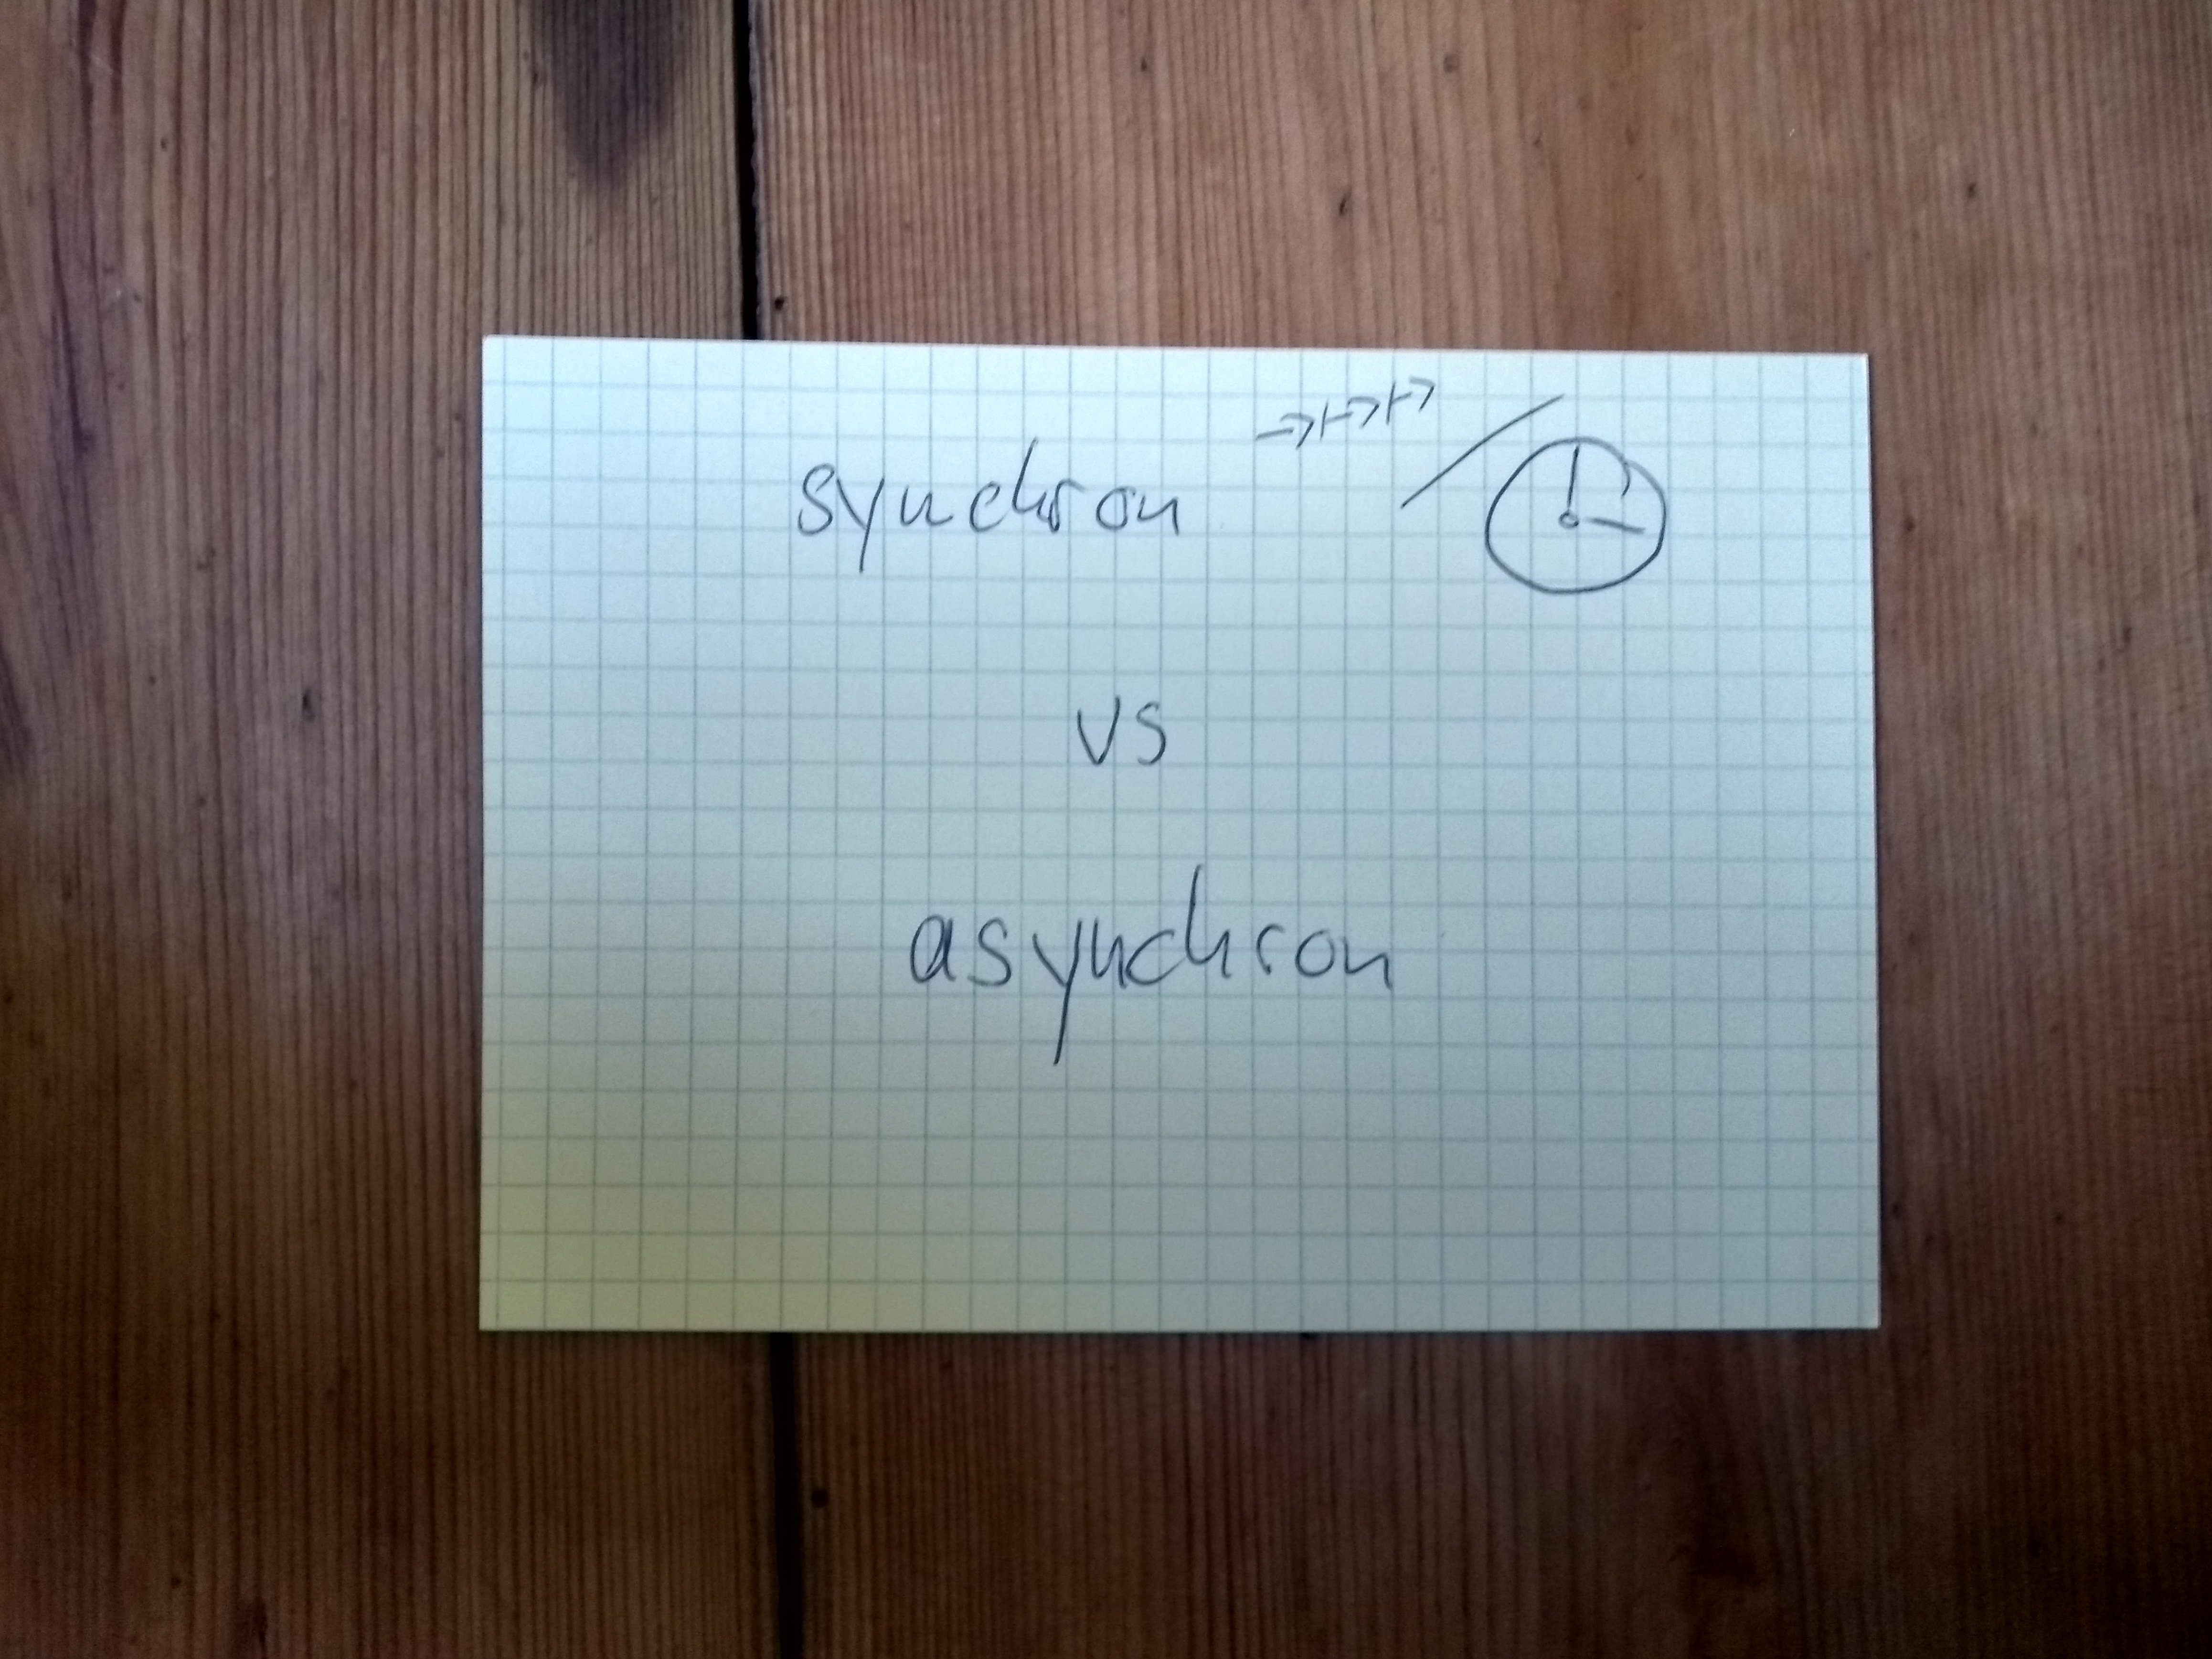 synchron
vs
asynchron